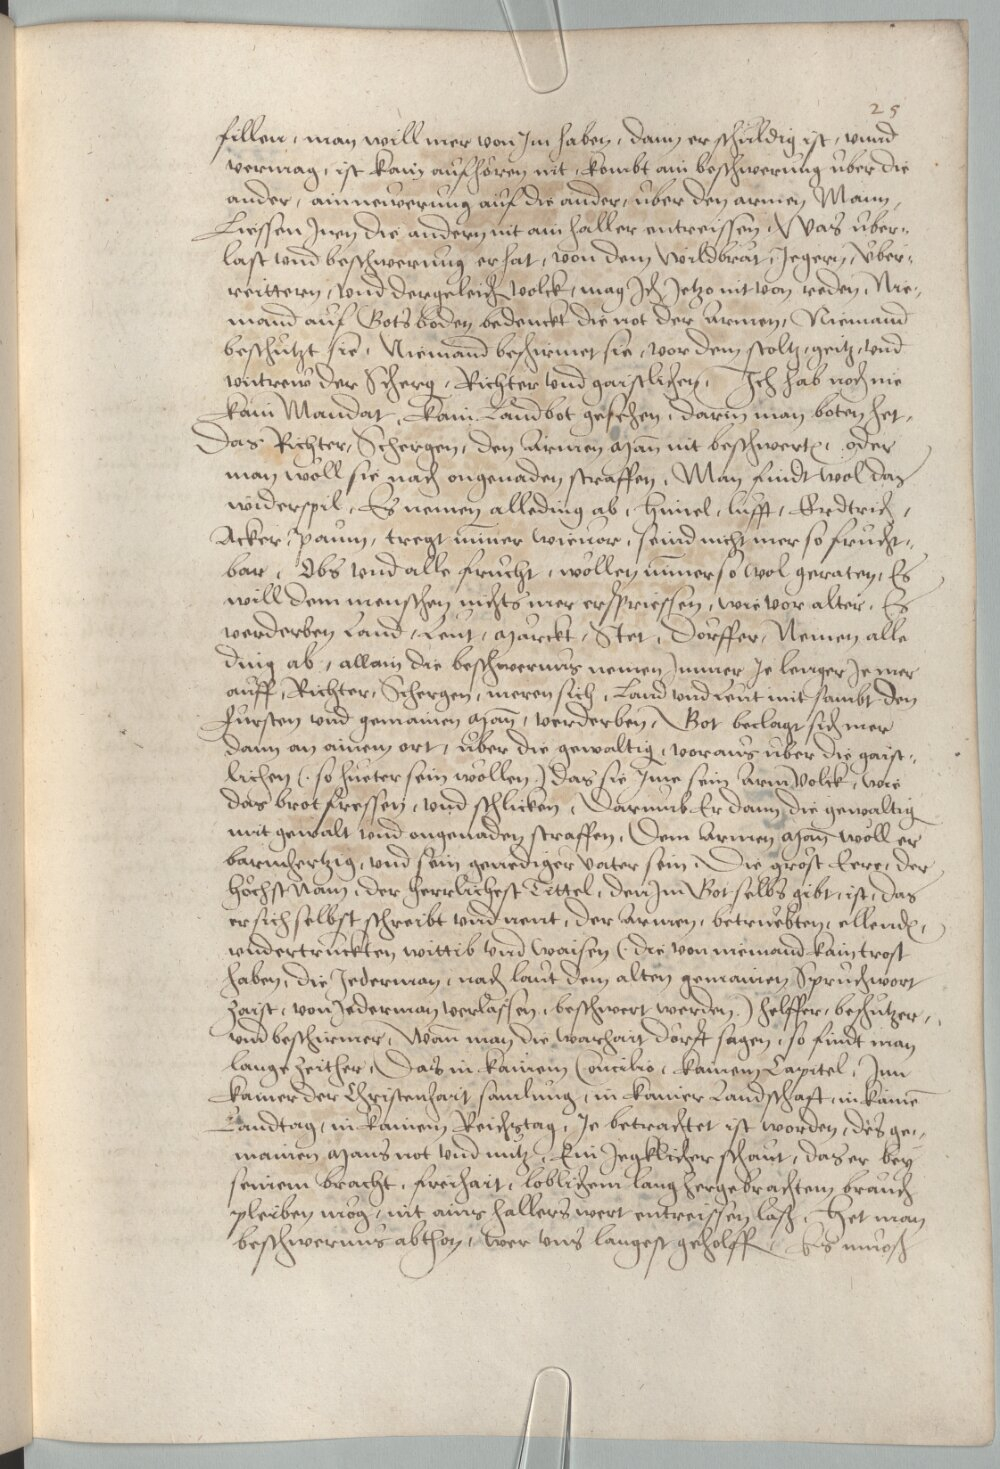 25
fillen, man will mer von Im haben, dann er schuldig ist, vnnd
vermag, ist kain aufhören nit, kombt ain beschwerung vber die
ander, ain newerung auf die ander, vber den armen Mann,
Liessen Inen die andern nit ain haller entreissen, Was vber-
last vnd beschwerung er hat, von dem wildbrat, Jegern, Vber-
reittern, vnd dergeleich volck, mag Ich Jetzo nit von reden, Nie-
mand auf Gots boden bedenckt die not der armen, Niemand
beschutzt sie, Niemand beschirmet sie, vor dem stoltz, geitz, vnd
vntrew der Scherg, Richter vnd gaistlichen, Ich hab noch nie
kain Mandat, kain Landbot gesehen, darin man boten het,
Das Richter, Schergen, den armen man nit beschwerten, oder
man wöll sie nach ongenaden straffen, Man findt wol das
widerspil, Es nemen alleding ab, himel, lufft, Erdtrich,
Acker, paum, tregt nimer wieuor, seind nicht mer so frucht-
bar, Obs vnd alle frucht, wöllen nimer so wol geraten, Es
will dem menschen nichts mer erspriessen, wie vor alter, Es
verderben Land, Leut, marckt, Stet, Dörffer, Nemen alle
ding ab, allain die beschwernus nemen Immer Je lenger Je mer
auff, Richter, Schergen, meren sich, Land vnd leut mit sambt den
fursten vnd gemainen man, verderben, Got beclagt sich mer
dann an ainem ort, vber die gewaltig, voraus vber die gaist-
lichen (so hueter sein wöllen) das sie Ime sein arm volck, wie
das brot fressen, vnd schlicken, Darumb Er dann die gewaltig
mit gewalt vnd ongenaden straffen, Dem armen man wöll er
barmhertzig, vnd sein genediger vater sein, Die gröst Eere, der
höchst Nam, der herrlichest Tittel, den Im Got selbs gibt, ist, das
er sich selbst schreibt vnd nent, der armen, betruebten, ellenden,
vndertruckten wittib vnd waisen (die von niemand kain trost
haben, die Jederman, nach laut dem alten gemainen Spruchwort
haist, von Jederman verlassen, beschwert werden) helffer, beschutzer,
vnd beschirmer, Wan man die warhait dörft sagen, so findt man
lange zeither, Das in kainem Concilio, kainem Capitel, Inn
kainer der Christenhait samlung, in kainer Landschaft, in kainem
Landtag, in kainem Reichstag, Je betrachtet ist worden, des ge-
mainen mans not vnd nutz, Ein Jegklicher schaut, das er bey
seinem bracht, freihait, loblichem lang hergebrachtem brauch
pleiben mög, nit ains hallers wert entreissen laß, Het man
beschwernus abthon, wer vns langest geholffen, Es muoß